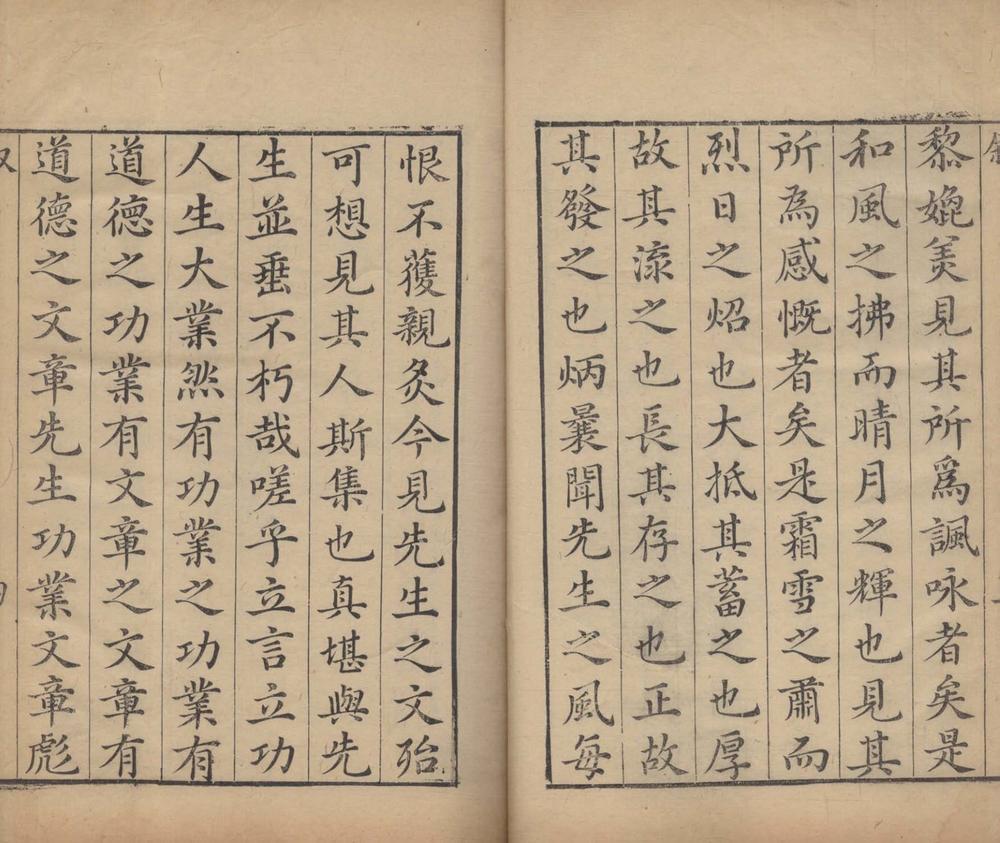 黎媲美見其所爲諷咏者矣是
和風之拂而晴月之輝也見其
所為感慨者矣是霜雪之肅而
烈日之炤也大抵其蓄之也厚
故其流之也長其存之也正故
其發之也炳曩聞先生之風每
恨不獲親炙今見先生之文殆
可想見其人斯集也真堪與先
生並垂不朽哉嗟乎立言立功
人生大業然有功業之功業有
道德之功業有文章之文章有
道德之文章先生功業文章彪